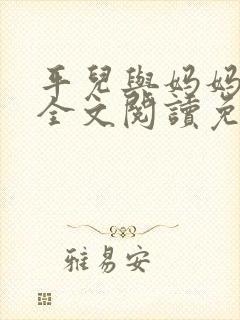 平兒與妈妈
全文閱讀免
雅易安